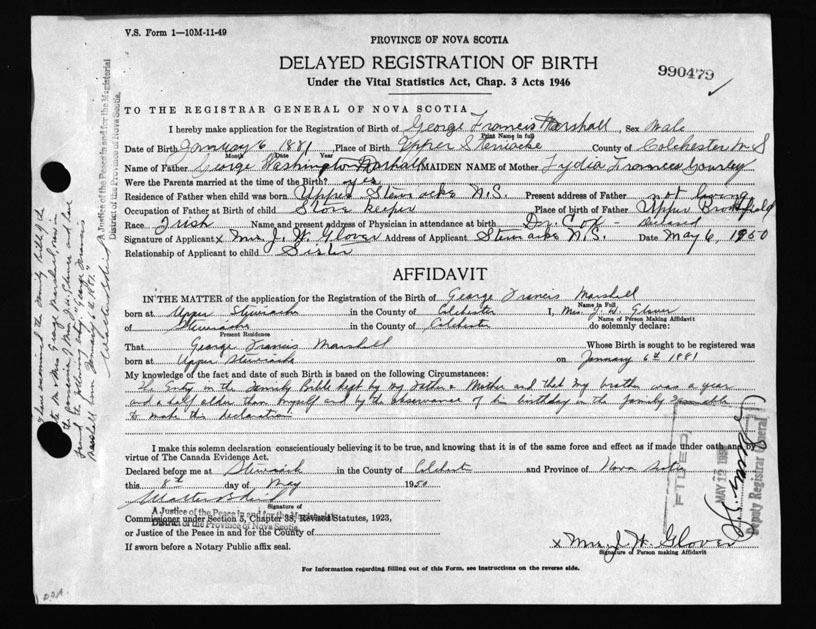 V.S. Form 1—10M-11-49
PROVINCE OF NOVA SCOTIA
DELAYED REGISTRATION OF BIRTH
Under the Vital Statistics Act, Chap. 3 Acts 1946
990479
TO THE REGISTRAR GENERAL OF NOVA SCOTIA
I hereby make application for the Registration of Birth of George Francis Marshall, Sex Male
Print Name in full
Date of Birth January 6 1881, Place of Birth Upper Stewiacke County of Colchester N.S
Month Date Year
Name of Father George Washington Marshall MAIDEN NAME of Mother Lydia Frances Gourley
Were the Parents married at the time of the Birth? yes
Residence of Father when child was born Upper Stewiacke N.S. Present address of Father not living
Occupation of Father at Birth of child Store Keeper Place of birth of Father Upper Brookfield
Race Irish Name and present address of Physician in attendance at birth Dr. Cox -
Signature of Applicant x Mrs. J. W. Glover Address of Applicant Stewiacke N.S. Date May 6, 1950
Relationship of Applicant to child Sister
AFFIDAVIT
IN THE MATTER of the application for the Registration of the Birth of George Francis Marshall
Name in Full
born at Upper Stewiacke in the County of Colchester I, Mrs. J. W. Glover
Name of Person Making Affidavit
of Stewiacke in the County of Colchester do solemnly declare:
Present Residence
That George Francis Marshall Whose Birth is sought to be registered was
born at Upper Stewiacke on January 6th 1881
My knowledge of the fact and date of such Birth is based on the following Circumstances:
The Entry in the Family Bible kept by my Father & Mother and that my brother was a year
and a half older than myself and by the observance of his birthday in the family I am able
to make this declaration
I make this solemn declaration conscientiously believing it to be true, and knowing that it is of the same force and effect as if made under oath and by
virtue of The Canada Evidence Act.
Declared before me at Stewiacke in the County of Colchester and Province of Nova Scotia
this 8th day of May 1950
Signature of
A Justice of the Peace in and for the Magisterial
District of the Province of Nova Scotia
Commissioner under Section 5, Chapter 38, Revised Statutes, 1923,
or Justice of the Peace in and for the County of
If sworn before a Notary Public affix seal.
x Mrs. J. W. Glover
Signature of Person making Affidavit
For Information regarding filling out of this Form, see instructions on the reverse side.
I have examined the family bible of the
late Mr & Mrs George Marshall, now in
the possession of Mrs. J. W. Glover and have
found the following entry "George Francis
Marshall born January 6th 1881."
A Justice of the Peace in and for the Magisterial
District of the Province of Nova Scotia.
FILED
MAY 12 1950
Deputy Registrar General